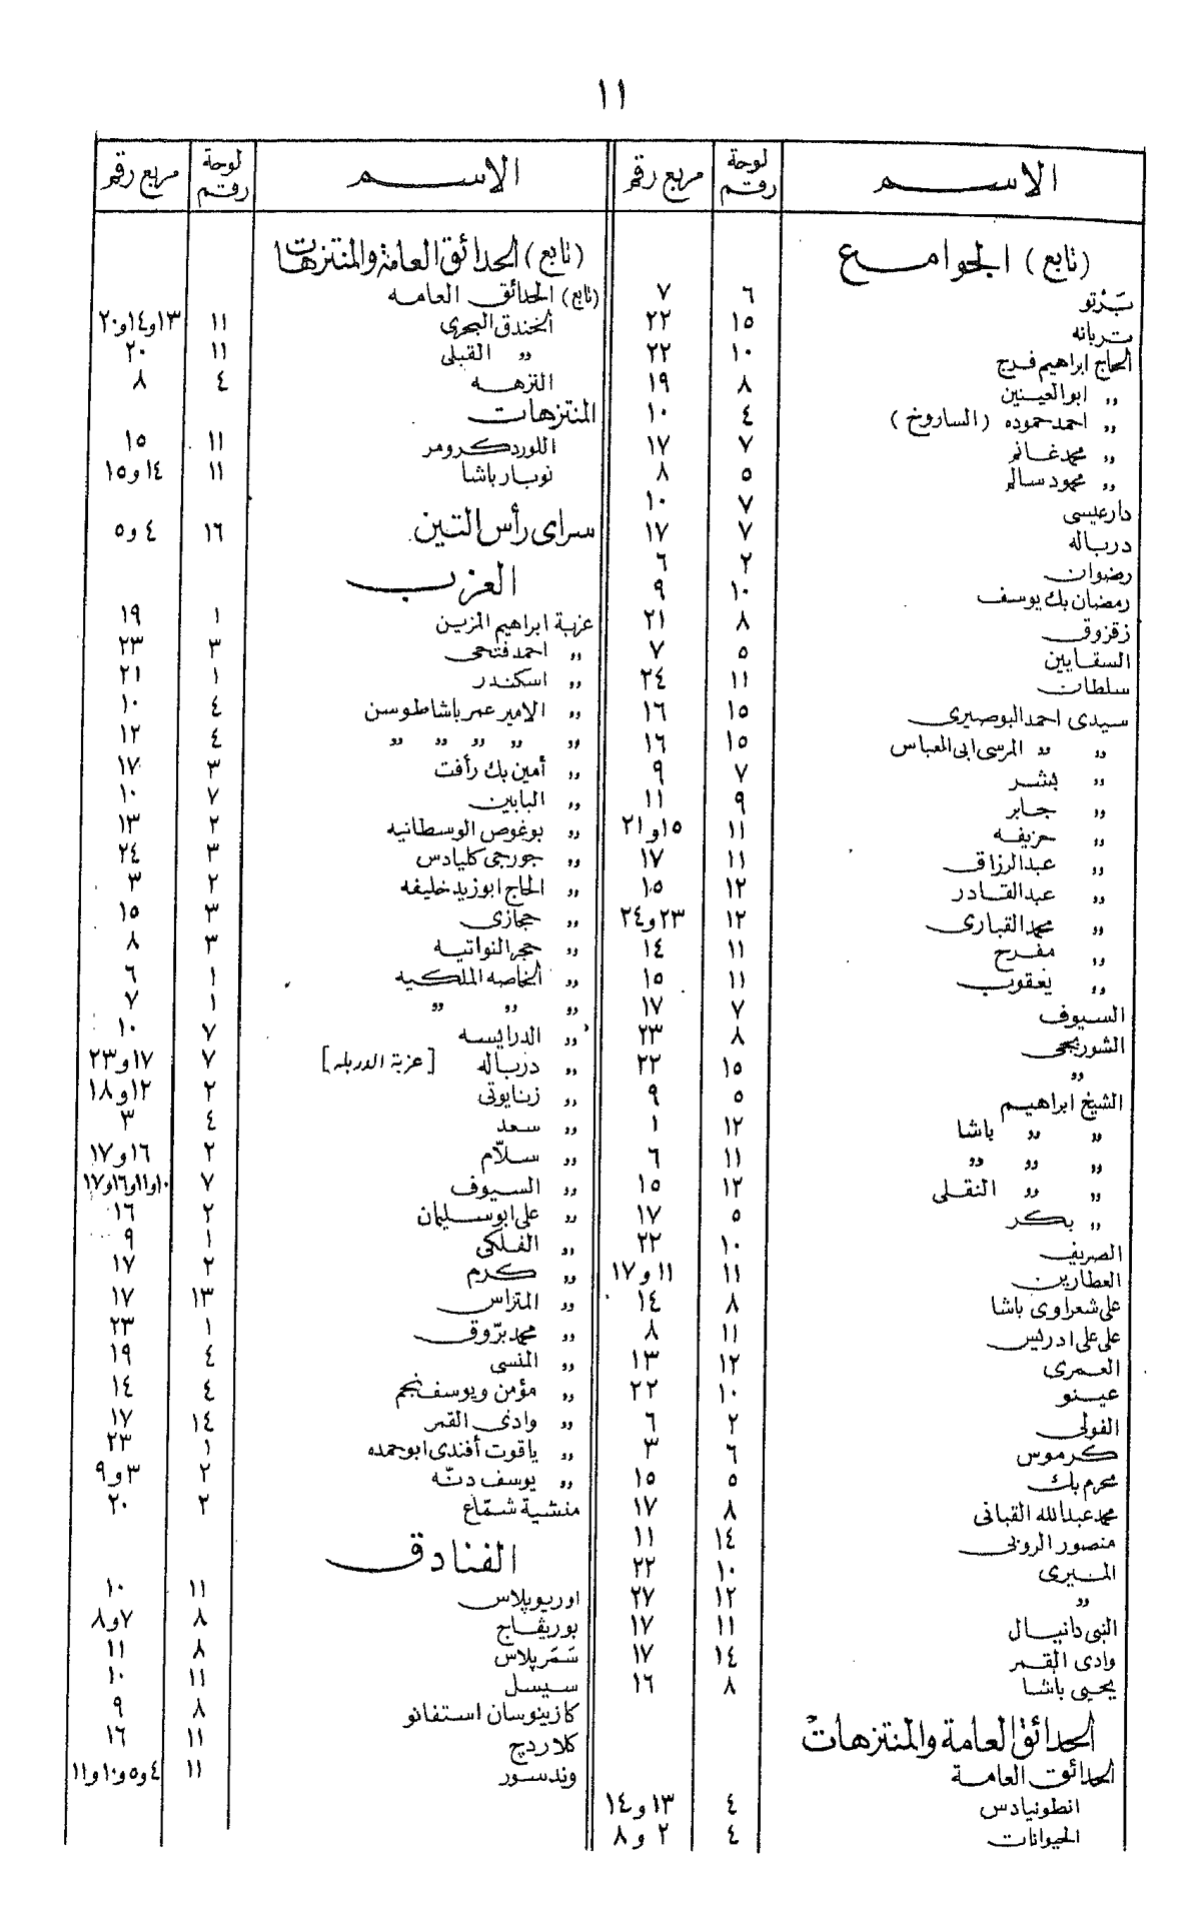 ١١
الاســـم | لوحة رقم | مربع رقم
(تابع) الجوامع
بَرتو ٦ ٧
تربانه ١٥ ٢٢
الحاج ابراهيم فرج ١٠ ٢٢
,, ابو العينين ٨ ١٩
,, احمد حموده (الساروخ) ٤ ١٠
,, محمد غانم ٧ ١٧
,, محمود سالم ٥ ٨
دار عيسى ٧ ١٠
درباله ٧ ١٧
رضوان ٢ ٦
رمضان بك يوسف ١٠ ٩
زقزوق ٨ ٢١
السقايين ٥ ٧
سلطان ١١ ٢٤
سيدى احمد البوصيرى ١٥ ١٦
,, ,, المرسى ابى العباس ١٥ ١٦
,, بشر ٧ ٩
,, جابر ٩ ١١
,, حزيفه ١١ ١٥و٢١
,, عبد الرزاق ١١ ١٧
,, عبد القادر ١٢ ١٥
,, محمد القبارى ١٢ ٢٣و٢٤
,, مفرح ١١ ١٤
,, يعقوب ١١ ١٥
السيوف ٧ ١٧
الشوربجى ٨ ٢٣
,, ١٥ ٢٢
الشيخ ابراهيم ٥ ٩
,, ,, باشا ١٢ ١
,, ,, ,, ١١ ٦
,, ,, النقلى ١٢ ١٥
,, بكر ٥ ١٧
الصريف ١٠ ٢٢
العطارين ١١ ١١ و ١٧
على شعراوى باشا ٨ ١٤
على على ادريس ١١ ٨
العمرى ١٢ ١٣
عينو ١٠ ٢٢
الفولى ٢ ٦
كرموس ٦ ٣
محرم بك ٥ ١٥
محمد عبد الله القبانى ٨ ١٧
منصور الروبى ١٤ ١١
المنيرى ١٠ ٢٢
,, ١٢ ٢٧
النبى دانيال ١١ ١٧
وادى القمر ١٤ ١٧
يحيى باشا ٨ ١٦
الحدائق العامة والمنتزهات
الحدائق العامة
انطونيادس ٤ ١٣ و ١٤
الحيوانات ٤ ٢ و ٨
الاســـم | لوحة رقم | مربع رقم
(تابع) الحدائق العامة والمنتزهات
(تابع) الحدائق العامه
الخندق البحرى ١١ ١٣و١٤و٢٠
,, القبلى ١١ ٢٠
النزهه ٤ ٨
المنتزهات
اللورد كرومر ١١ ١٥
نوبار باشا ١١ ١٤ و ١٥
سراى رأس التين ١٦ ٤ و ٥
العزب
عزبة ابراهيم المزين ١ ١٩
,, احمد فتحى ٣ ٢٣
,, اسكندر ١ ٢١
,, الامير عمر باشا طوسن ٤ ١٠
,, ,, ,, ,, ,, ٤ ١٢
,, أمين بك رأفت ٣ ١٧
,, البابين ٧ ١٠
,, بوغوص الوسطانيه ٢ ١٣
,, جورجى كليادس ٣ ٢٤
,, الحاج ابو زيد خليفه ٢ ٣
,, حجازى ٣ ١٥
,, حجر النواتيه ٣ ٨
,, الخاصه الملكيه ١ ٦
,, ,, ,, ١ ٧
,, الدرايسه ٧ ١٠
,, درباله [عزبة الدربله] ٧ ١٧و٢٣
,, زنايوتى ٢ ١٢ و ١٨
,, سعد ٤ ٣
,, سلاّم ٢ ١٦ و ١٧
,, السيوف ٧ ١٠و١١و١٦و١٧
,, على ابو سليمان ٢ ١٦
,, الفلكى ١ ٩
,, كرم ٢ ١٧
,, المتراس ١٣ ١٧
,, محمد برّوق ١ ٢٣
,, المنسى ٤ ١٩
,, مؤمن ويوسف نجم ٤ ١٤
,, وادى القمر ١٤ ١٧
,, ياقوت أفندى ابو حمده ١ ٢٣
,, يوسف دنّه ٢ ٣ و ٩
منشية شمّاع ٢ ٢٠
الفنادق
اوريوپلاس ١١ ١٠
بوريڤاج ٨ ٧و٨
سَمَرپلاس ٨ ١١
سيسل ١١ ١٠
كازينوسان استفانو ٨ ٩
كلاردچ ١١ ١٦
وندسور ١١ ٤و٥و١٠و١١